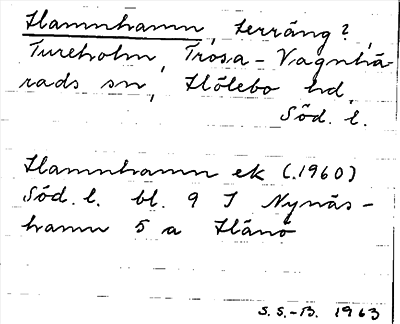 Hamnhamn, terräng?,
Tureholm, Trosa-Vagnhä-
rads sn, Hölebo hd,
Söd. l.
Hamnhamn ek (.1960)
Söd. l. bl. 9 I Nynäs-
hamn 5 a Hånö
S.S.-B. 1963